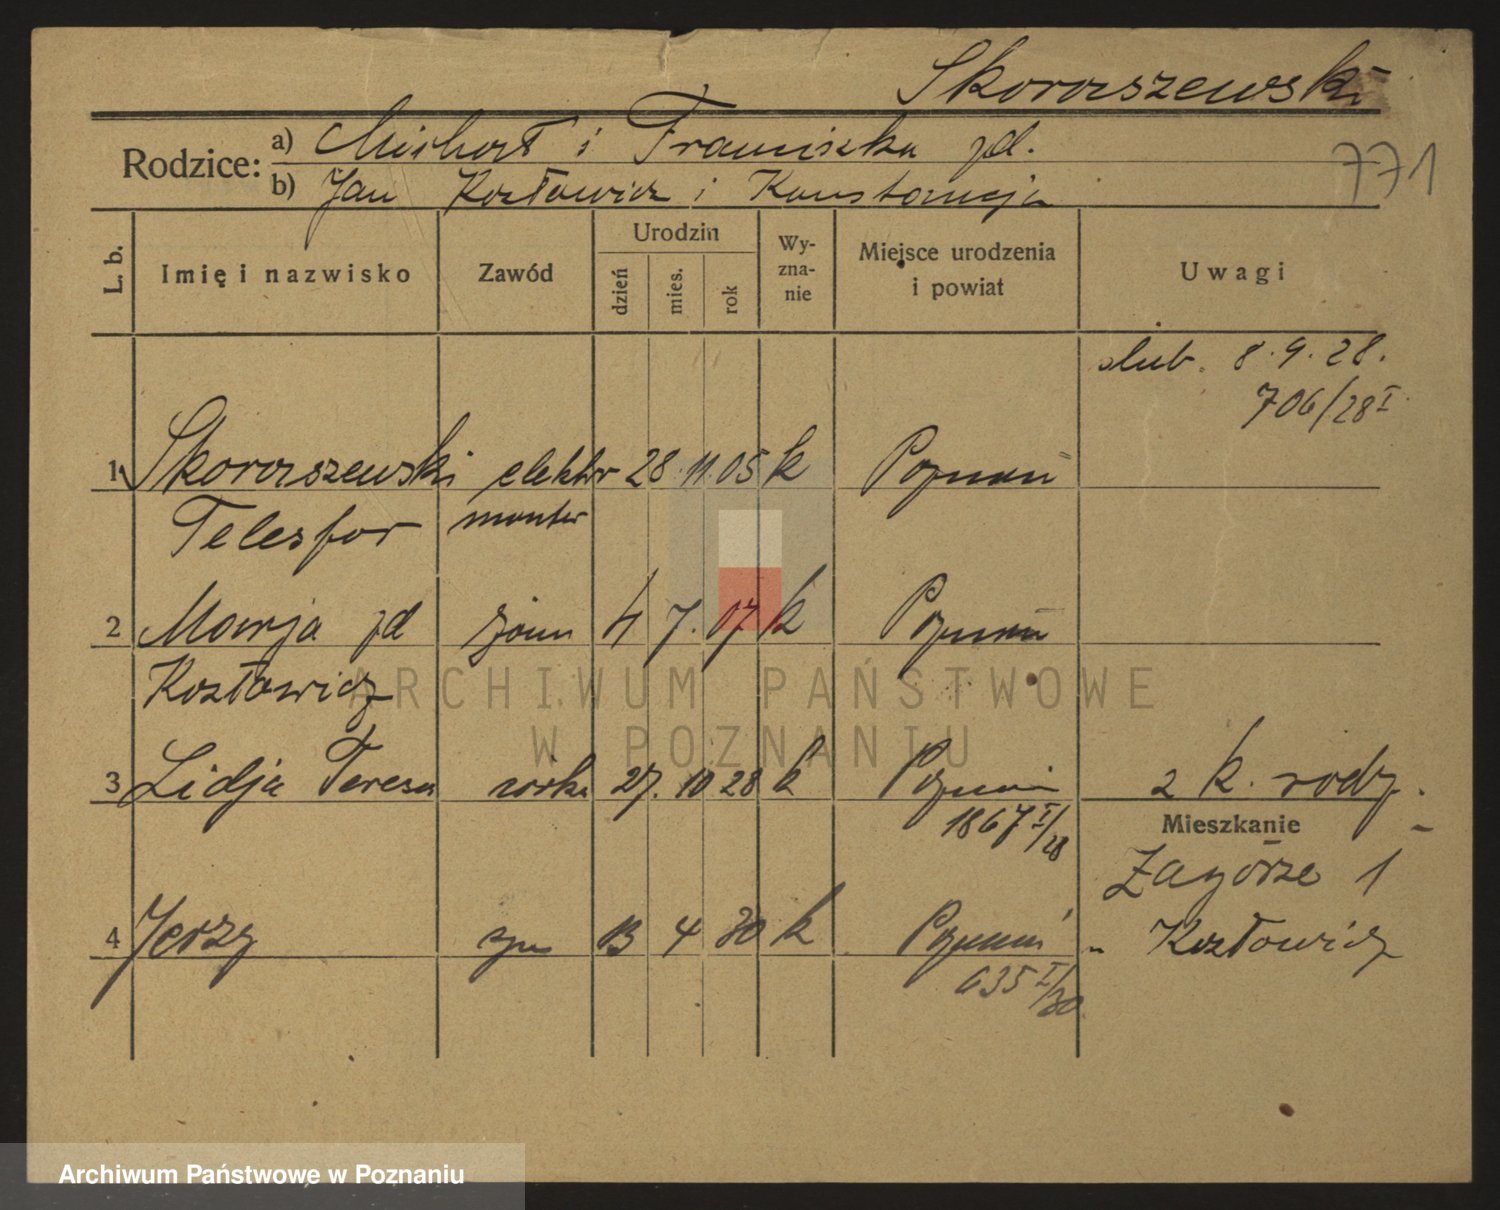 Skoroszewski
Rodzice:
a) Michał i Franciszka zd.
b) Jan Kozłowicz i Konstancja
771
L. b.
Imię i nazwisko
Zawód
Urodzin
dzień
mies.
rok
Wy-
zna-
nie
Miejsce urodzenia
i powiat
Uwagi
slub. 8.9.28.
706/28 I
1 Skoroszewski elektor 28. 11. 05 k Poznań
Telesfor monter
2 Marja zd żona 4 7. 07 k Poznań
Kozłowicz
3 Lidja Teresa córka 27. 10 28 k Poznań 2 k. rodz.
1867 I/28
Mieszkanie
Zagórze 1
4 Jerzy syn 13 4 30 k Poznań " Kozłowicz
635 I/30
ARCHIWUM PAŃSTWOWE
W POZNANIU
Archiwum Państwowe w Poznaniu